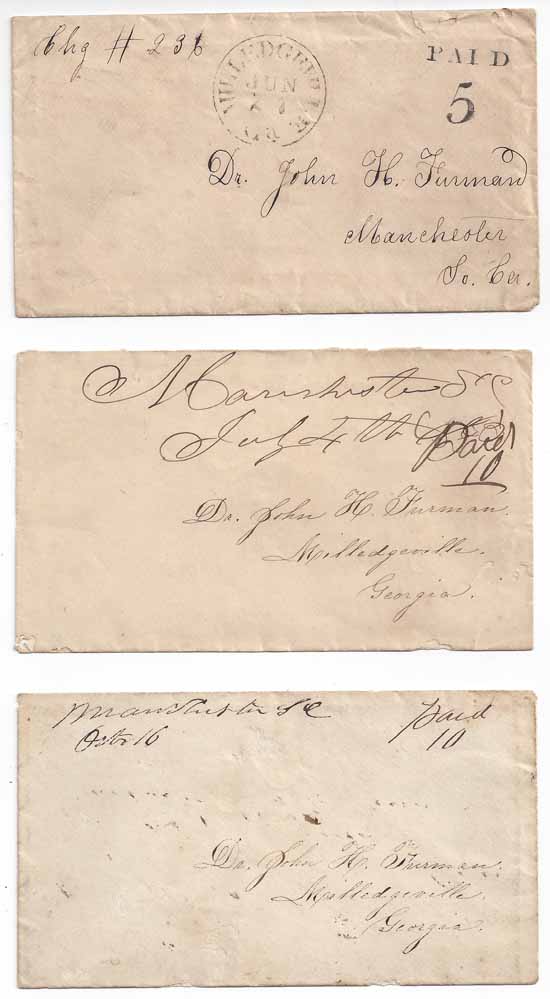 Chg # 236
MILLEDGEVILLE
JUN
GA
PAID
5
Dr. John H. Furman
Manchester
So. Car.
Manchester S C
July 4th
Paid
10
Dr. John H. Furman.
Milledgeville.
Georgia.
Manchester S C
Paid
Octr 16
10
Dr. John H. Furman.
Milledgeville.
Georgia.